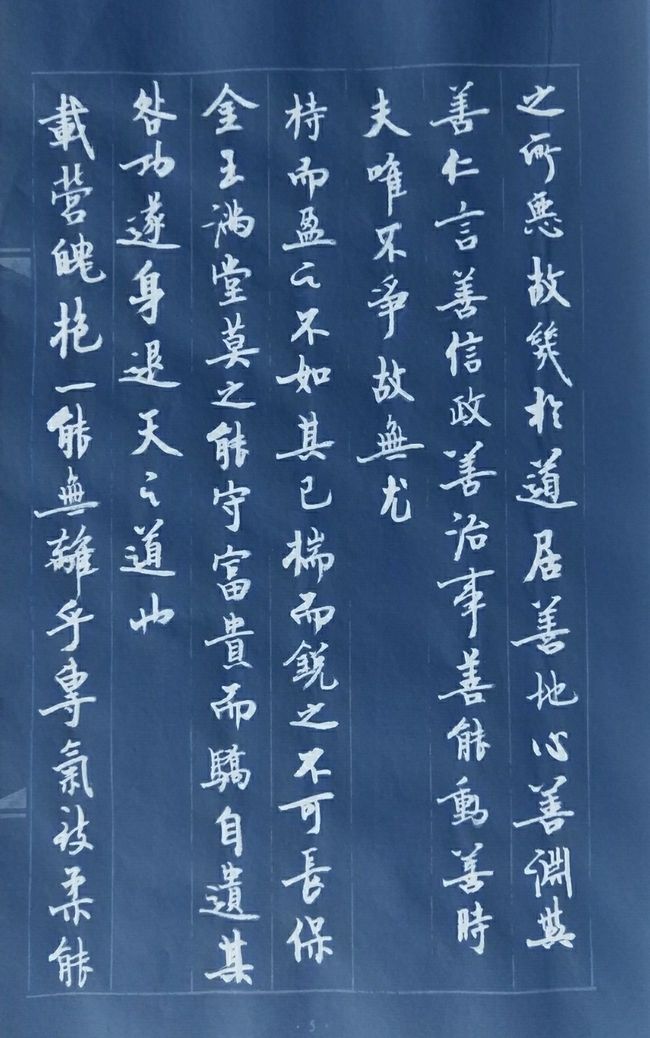 之所惡故幾於道居善地心善淵與
善仁言善信政善治事善能動善時
夫唯不爭故無尤
持而盈之不如其已揣而銳之不可長保
金玉滿堂莫之能守富貴而驕自遺其
咎功遂身退天之道也
載營魄抱一能無離乎專氣致柔能
5